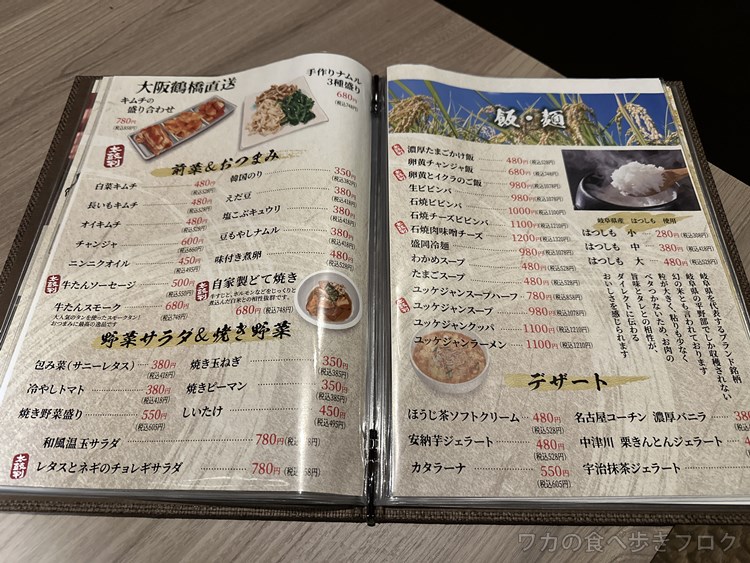 大阪鶴橋直送
キムチの
盛り合わせ
780円
(税込858円)
手作りナムル
3種盛り
680円
(税込748円)
太鼓判
前菜&おつまみ
白菜キムチ 480円 (税込528円)
長いもキムチ 480円 (税込528円)
オイキムチ 480円 (税込528円)
チャンジャ 600円 (税込660円)
ニンニクオイル 450円 (税込495円)
太鼓判 牛たんソーセージ 500円 (税込550円)
牛たんスモーク 680円 (税込748円)
大人気のタンを使ったスモークタン!
おつまみに最高の逸品です
韓国のり 350円 (税込385円)
えだ豆 380円 (税込418円)
塩こぶキュウリ 380円 (税込418円)
豆もやしナムル 380円 (税込418円)
味付き煮卵 480円 (税込528円)
太鼓判 自家製どて焼き
牛すじと、ホルモンなどをじっくりと
煮込んだ自家製との相性抜群です。
680円 (税込748円)
野菜サラダ&焼き野菜
包み菜(サニーレタス) 380円 (税込418円)
冷やしトマト 380円 (税込418円)
焼き野菜盛り 550円 (税込605円)
焼き玉ねぎ 350円 (税込385円)
焼きピーマン 350円 (税込385円)
しいたけ 450円 (税込495円)
和風温玉サラダ 780円
太鼓判 レタスとネギのチョレギサラダ 780円
飯・麺
太鼓判 濃厚たまごかけ飯 480円 (税込528円)
卵黄チャンジャ飯 680円 (税込748円)
太鼓判 卵黄とイクラのご飯 980円 (税込1078円)
生ビビンバ 980円 (税込1078円)
石焼ビビンバ 1000円 (税込1100円)
石焼チーズビビンバ 1100円 (税込1210円)
太鼓判 石焼肉味噌チーズ 1200円 (税込1320円)
盛岡冷麺 980円 (税込1078円)
わかめスープ 480円 (税込528円)
たまごスープ 480円 (税込528円)
ユッケジャンスープハーフ 780円 (税込858円)
太鼓判 ユッケジャンスープ 980円 (税込1078円)
ユッケジャンクッパ 1100円 (税込1210円)
ユッケジャンラーメン 1100円 (税込1210円)
岐阜県産 はつしも 使用
はつしも 小 280円 (税込308円)
はつしも 中 380円 (税込418円)
はつしも 大 480円 (税込528円)
岐阜県を代表するブランド銘柄
岐阜の平野部でしか収穫されない
幻の米とも言われております
粒が大きく、粘りも少なく
ベタつかないため、お肉の
旨味とタレとの相性が、
ダイレクトに伝わる
おいしさを感じられます
デザート
ほうじ茶ソフトクリーム 480円 (税込528円)
安納芋ジェラート 480円 (税込528円)
カタラーナ 550円 (税込605円)
名古屋コーチン 濃厚バニラ
中津川 栗きんとんジェラート
宇治抹茶ジェラート
ワカの食べ歩きブログ